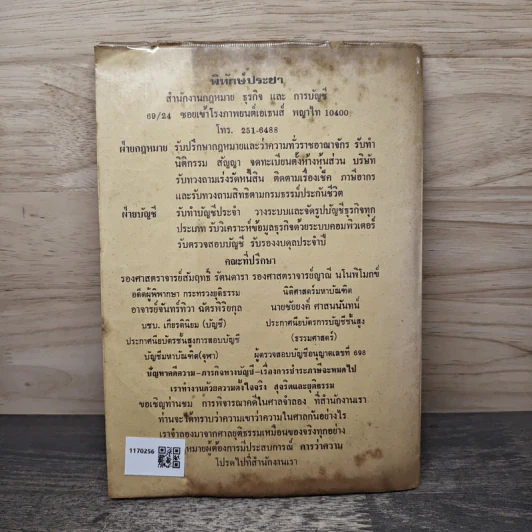 พิทักษ์ประชา
สำนักงานกฎหมาย ธุรกิจ และ การบัญชี
69/24 ซอยเข้าโรงภาพยนต์เอเธนส์ พญาไท 10400
โทร. 251-6488
ฝ่ายกฎหมาย รับปรึกษากฎหมายและว่าความทั่วราชอาณาจักร รับทำ
นิติกรรม สัญญา จดทะเบียนตั้งห้างหุ้นส่วน บริษัท
รับทวงถามเร่งรัดหนี้สิน ติดตามเรื่องเช็ค ภาษีอากร
และรับทวงถามสิทธิตามกรมธรรม์ประกันชีวิต
ฝ่ายบัญชี รับทำบัญชีประจำ วางระบบและจัดรูปบัญชีธุรกิจทุก
ประเภท รับวิเคราะห์ข้อมูลธุรกิจด้วยระบบคอมพิวเตอร์
รับตรวจสอบบัญชี รับรองงบดุลประจำปี
คณะที่ปรึกษา
รองศาสตราจารย์สัมฤทธิ์ รัตนดารา รองศาสตราจารย์ญาณี นโนพิโมกข์
อดีตผู้พิพากษา กระทรวงยุติธรรม นิติศาสตร์มหาบัณฑิต
อาจารย์จันทร์ทิวา ฉัตรพิริยกุล นายชัยยงค์ ศาสนนันทน์
นชบ. เกียรตินิยม (บัญชี) ประกาศนียบัตรการบัญชีชั้นสูง
ประกาศนียบัตรชั้นสูงการสอบบัญชี (ธรรมศาสตร์)
บัญชีมหาบัณฑิต(จุฬา) ผู้ตรวจสอบบัญชีอนุญาตเลขที่ 698
ปัญหาคดีความ-ภารกิจทางบัญชี-เรื่องการชำระภาษีจะหมดไป
เราทำงานด้วยความตั้งใจจริง สุจริตและยุติธรรม
ขอเชิญท่านชม การพิจารณาคดีในศาลจำลอง ที่สำนักงานเรา
ท่านจะได้ทราบว่าความเขาว่าความในศาลกันอย่างไร
เราจำลองมาจากศาลยุติธรรมเหมือนของจริงทุกอย่าง
ผู้ต้องการมีประสบการณ์ การว่าความ
โปรดไปที่สำนักงานเรา
1170256